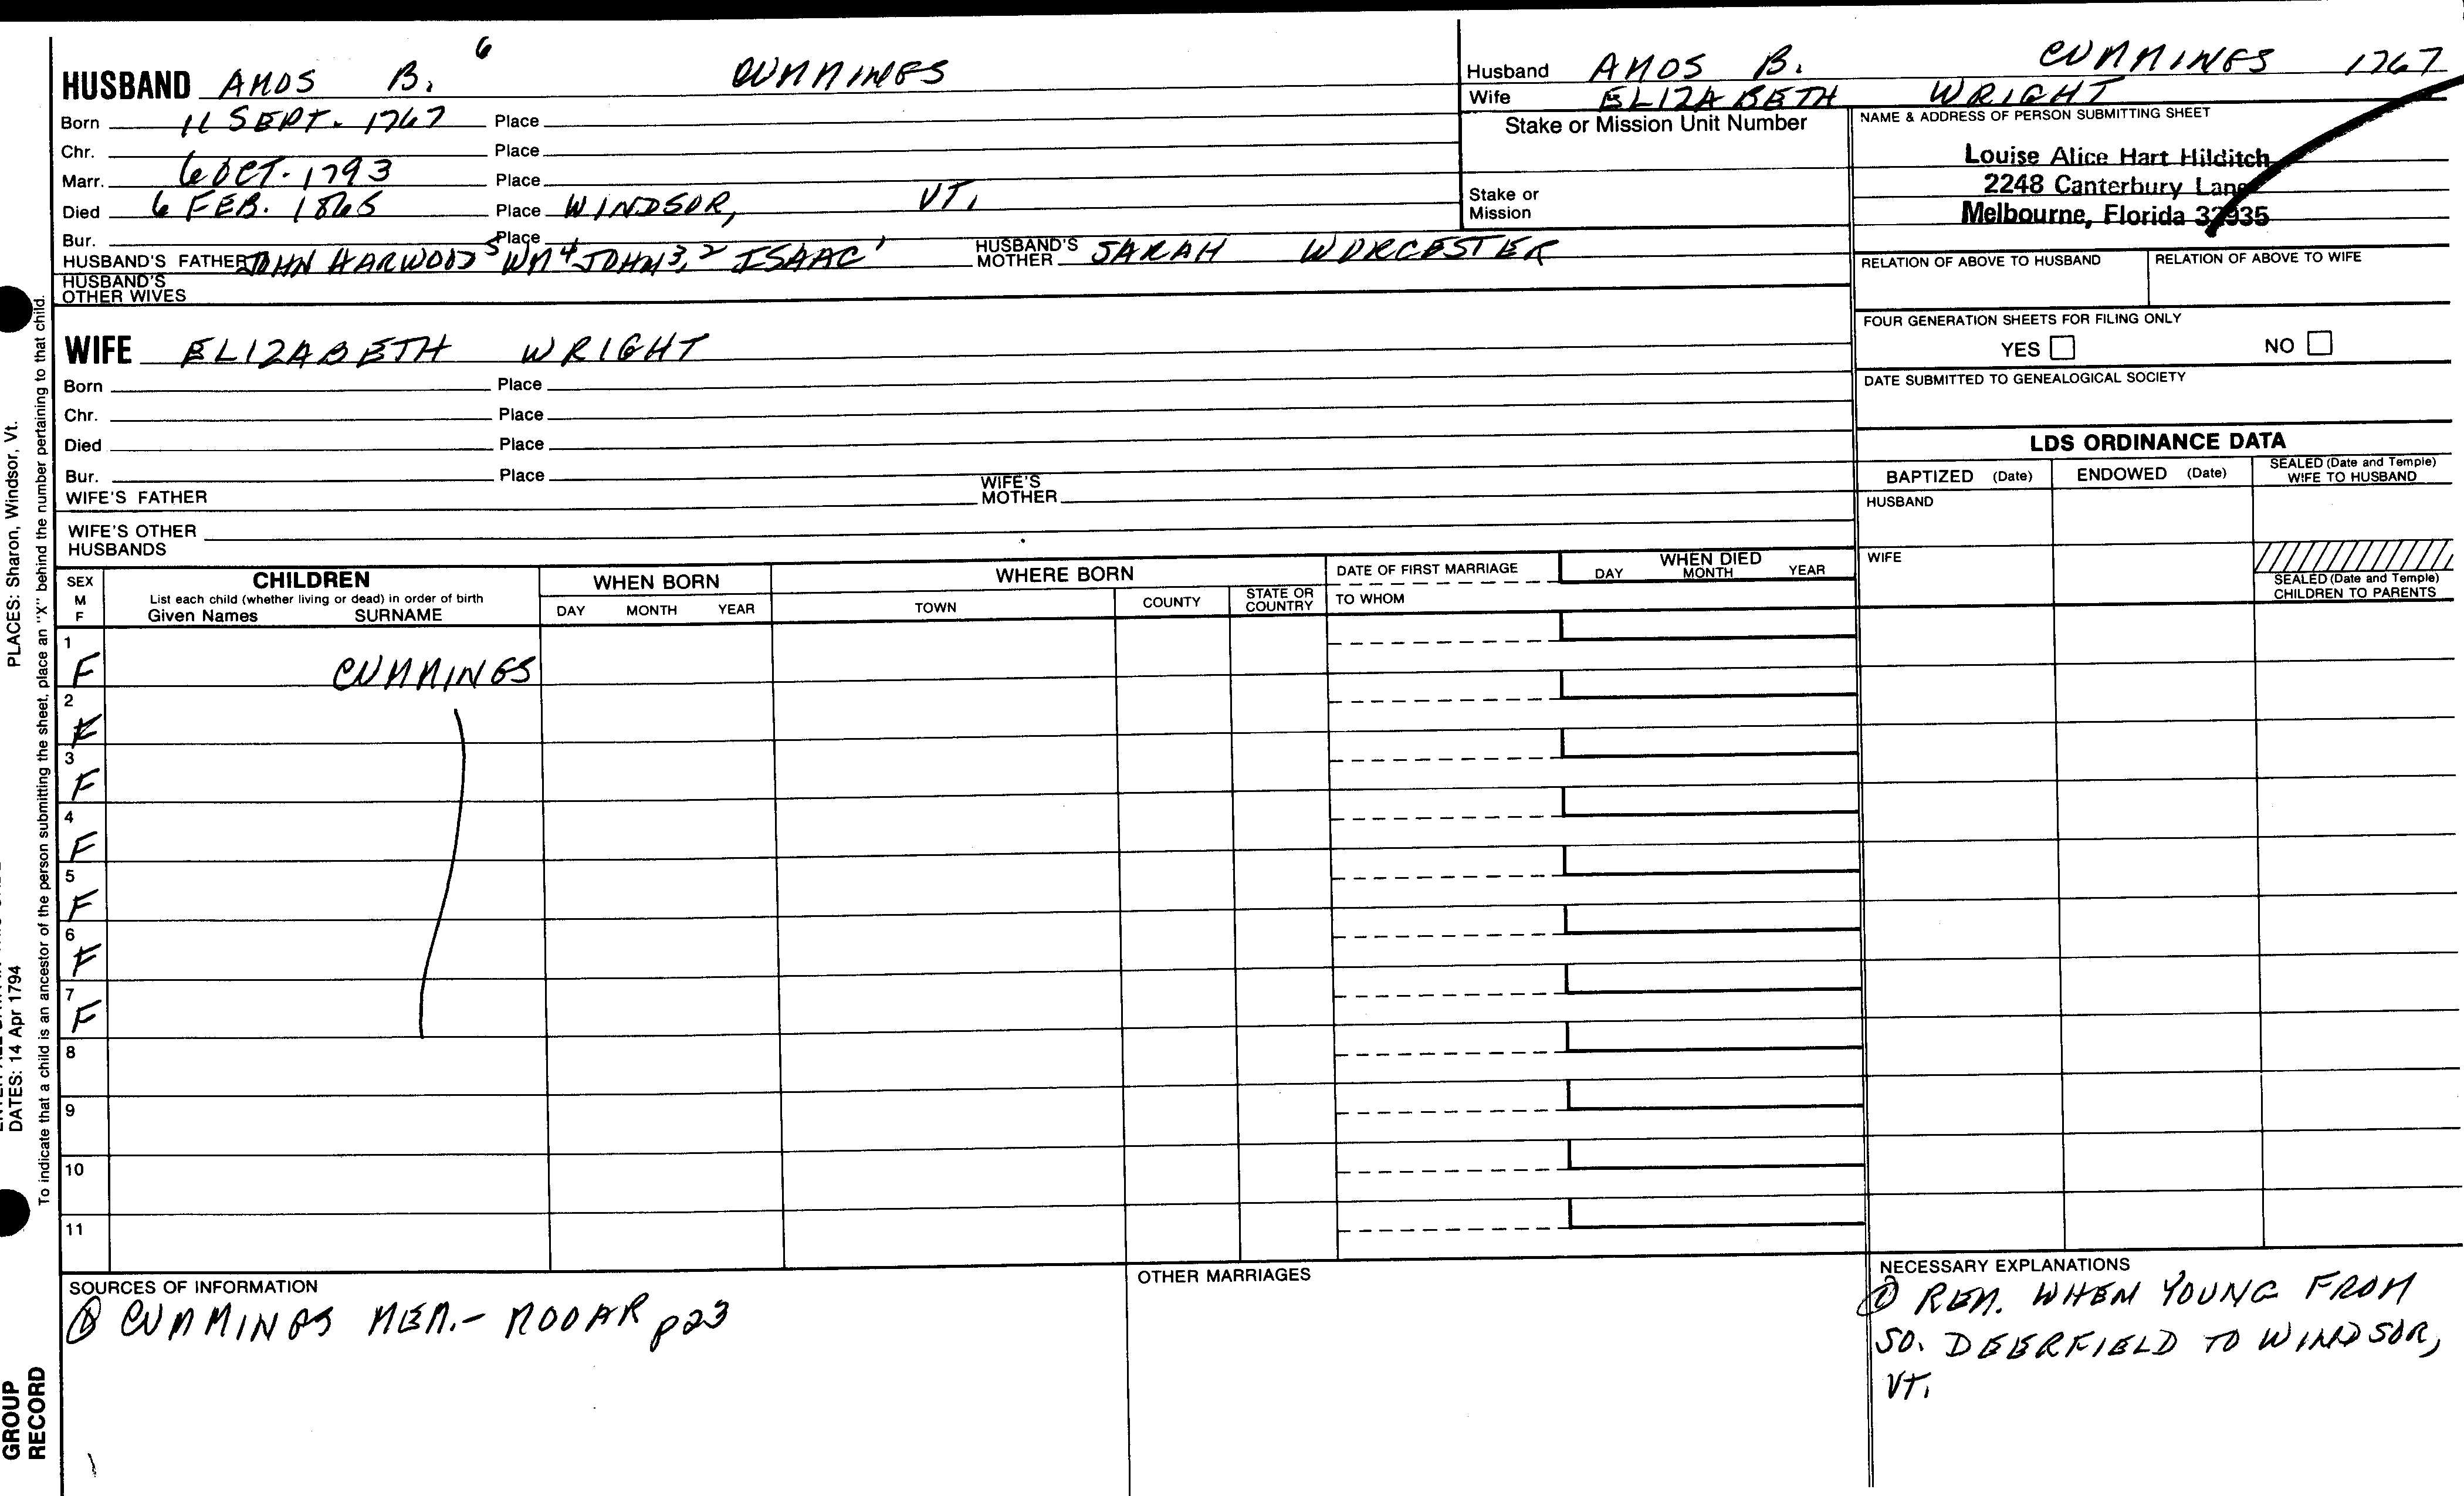 HUSBAND AMOS B. 6 CUMMINGS
Born 11 SEPT. 1767 Place
Chr. Place
Marr. 6 OCT. 1793 Place
Died 6 FEB. 1865 Place WINDSOR, VT.
Bur. Place
HUSBAND'S FATHER JOHN HARWOOD 5 WM 4 JOHN 3, 2 ISAAC 1 HUSBAND'S MOTHER SARAH WORCESTER
HUSBAND'S
OTHER WIVES
Husband AMOS B. CUMMINGS 1767
Wife ELIZABETH WRIGHT
Stake or Mission Unit Number
Stake or
Mission
NAME & ADDRESS OF PERSON SUBMITTING SHEET
Louise Alice Hart Hilditch
2248 Canterbury Lane
Melbourne, Florida 32935
RELATION OF ABOVE TO HUSBAND RELATION OF ABOVE TO WIFE
FOUR GENERATION SHEETS FOR FILING ONLY
YES NO
DATE SUBMITTED TO GENEALOGICAL SOCIETY
WIFE ELIZABETH WRIGHT
Born Place
Chr. Place
Died Place
Bur. Place
WIFE'S FATHER WIFE'S MOTHER
WIFE'S OTHER
HUSBANDS
LDS ORDINANCE DATA
BAPTIZED (Date) ENDOWED (Date) SEALED (Date and Temple) WIFE TO HUSBAND
HUSBAND
WIFE
SEALED (Date and Temple)
CHILDREN TO PARENTS
SEX
M
F
CHILDREN
List each child (whether living or dead) in order of birth
Given Names SURNAME
WHEN BORN
DAY MONTH YEAR
WHERE BORN
TOWN COUNTY STATE OR COUNTRY
DATE OF FIRST MARRIAGE
TO WHOM
WHEN DIED
DAY MONTH YEAR
1
F CUMMINGS
2
F
3
F
4
F
5
F
6
F
7
F
8
9
10
11
SOURCES OF INFORMATION
① CUMMINGS MEM.- MOOAR p23
OTHER MARRIAGES
NECESSARY EXPLANATIONS
① REM. WHEN YOUNG FROM
SO. DEERFIELD TO WINDSOR,
VT.
PLACES: Sharon, Windsor, Vt.
DATES: 14 Apr 1794
To indicate that a child is an ancestor of the person submitting the sheet, place an "X" behind the number pertaining to that child.
GROUP
RECORD